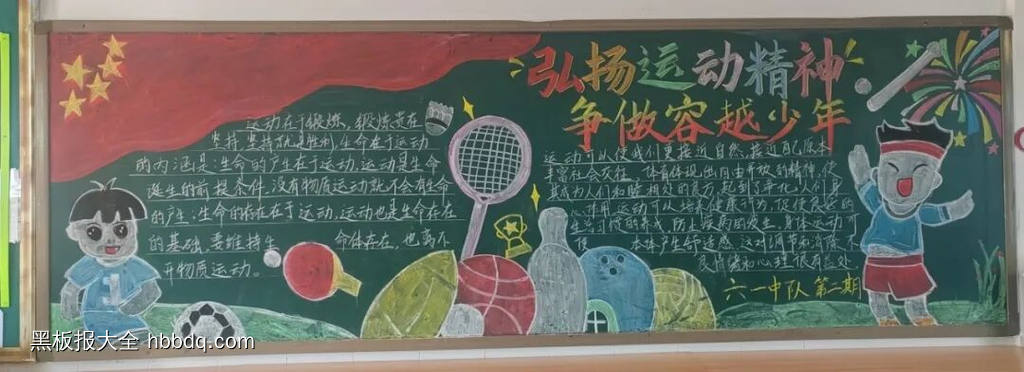 弘扬运动精神
争做容越少年
运动在于锻炼,锻炼贵在
坚持,坚持就是胜利,生命在于运动
的内涵是:生命的产在于运动,运动是生命
诞生的前提条件,没有物质运动就不会有生命
的产;生命的存在在于运动,运动也是生命存在
的基础,要维持生 命体存在,也离不
开物质运动。
运动可以使我们更接近自然,接近
体育体现出自由开放的精神,使
其成为人们和睦相处的良方
运动可以培养健康行为
生活习惯的养成,防止疾病的发生,身体运动可
使 本体产生舒适感,这对调节和消除不
良情绪和心理很有益处
六一中队 第二期
1
黑板报大全 hbbdq.com